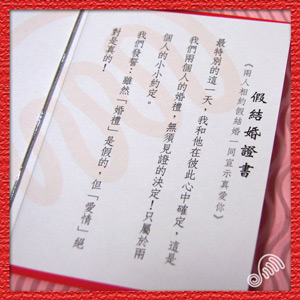 假結婚證書
《兩人相約假結婚一同宣示真愛你》
最特別的這一天，我和他在彼此心中確定，這是
我們兩個人的婚禮，無須見證的決定！只屬於兩
個人的小小約定。
我們發誓：雖然「婚禮」是假的，但「愛情」絕
對是真的！